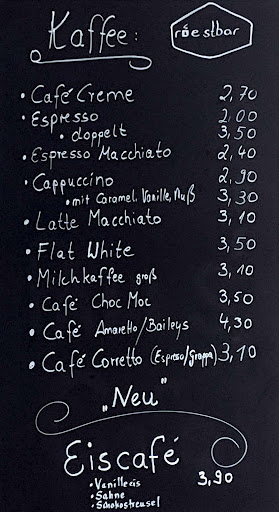 Kaffee: röestbar
• Café Creme 2,70
• Espresso 2,00
• doppelt 3,50
• Espresso Macchiato 2,40
• Cappuccino 2,90
• mit Caramel, Vanille, Nuß 3,30
• Latte Macchiato 3,10
• Flat White 3,50
• Milchkaffee groß 3,10
• Café Choc Moc 3,50
• Café Amaretto/Baileys 4,30
• Café Corretto (Espresso/Grappa) 3,10
"Neu"
Eiscafé 3,90
• Vanilleeis
• Sahne
• Schokostreusel